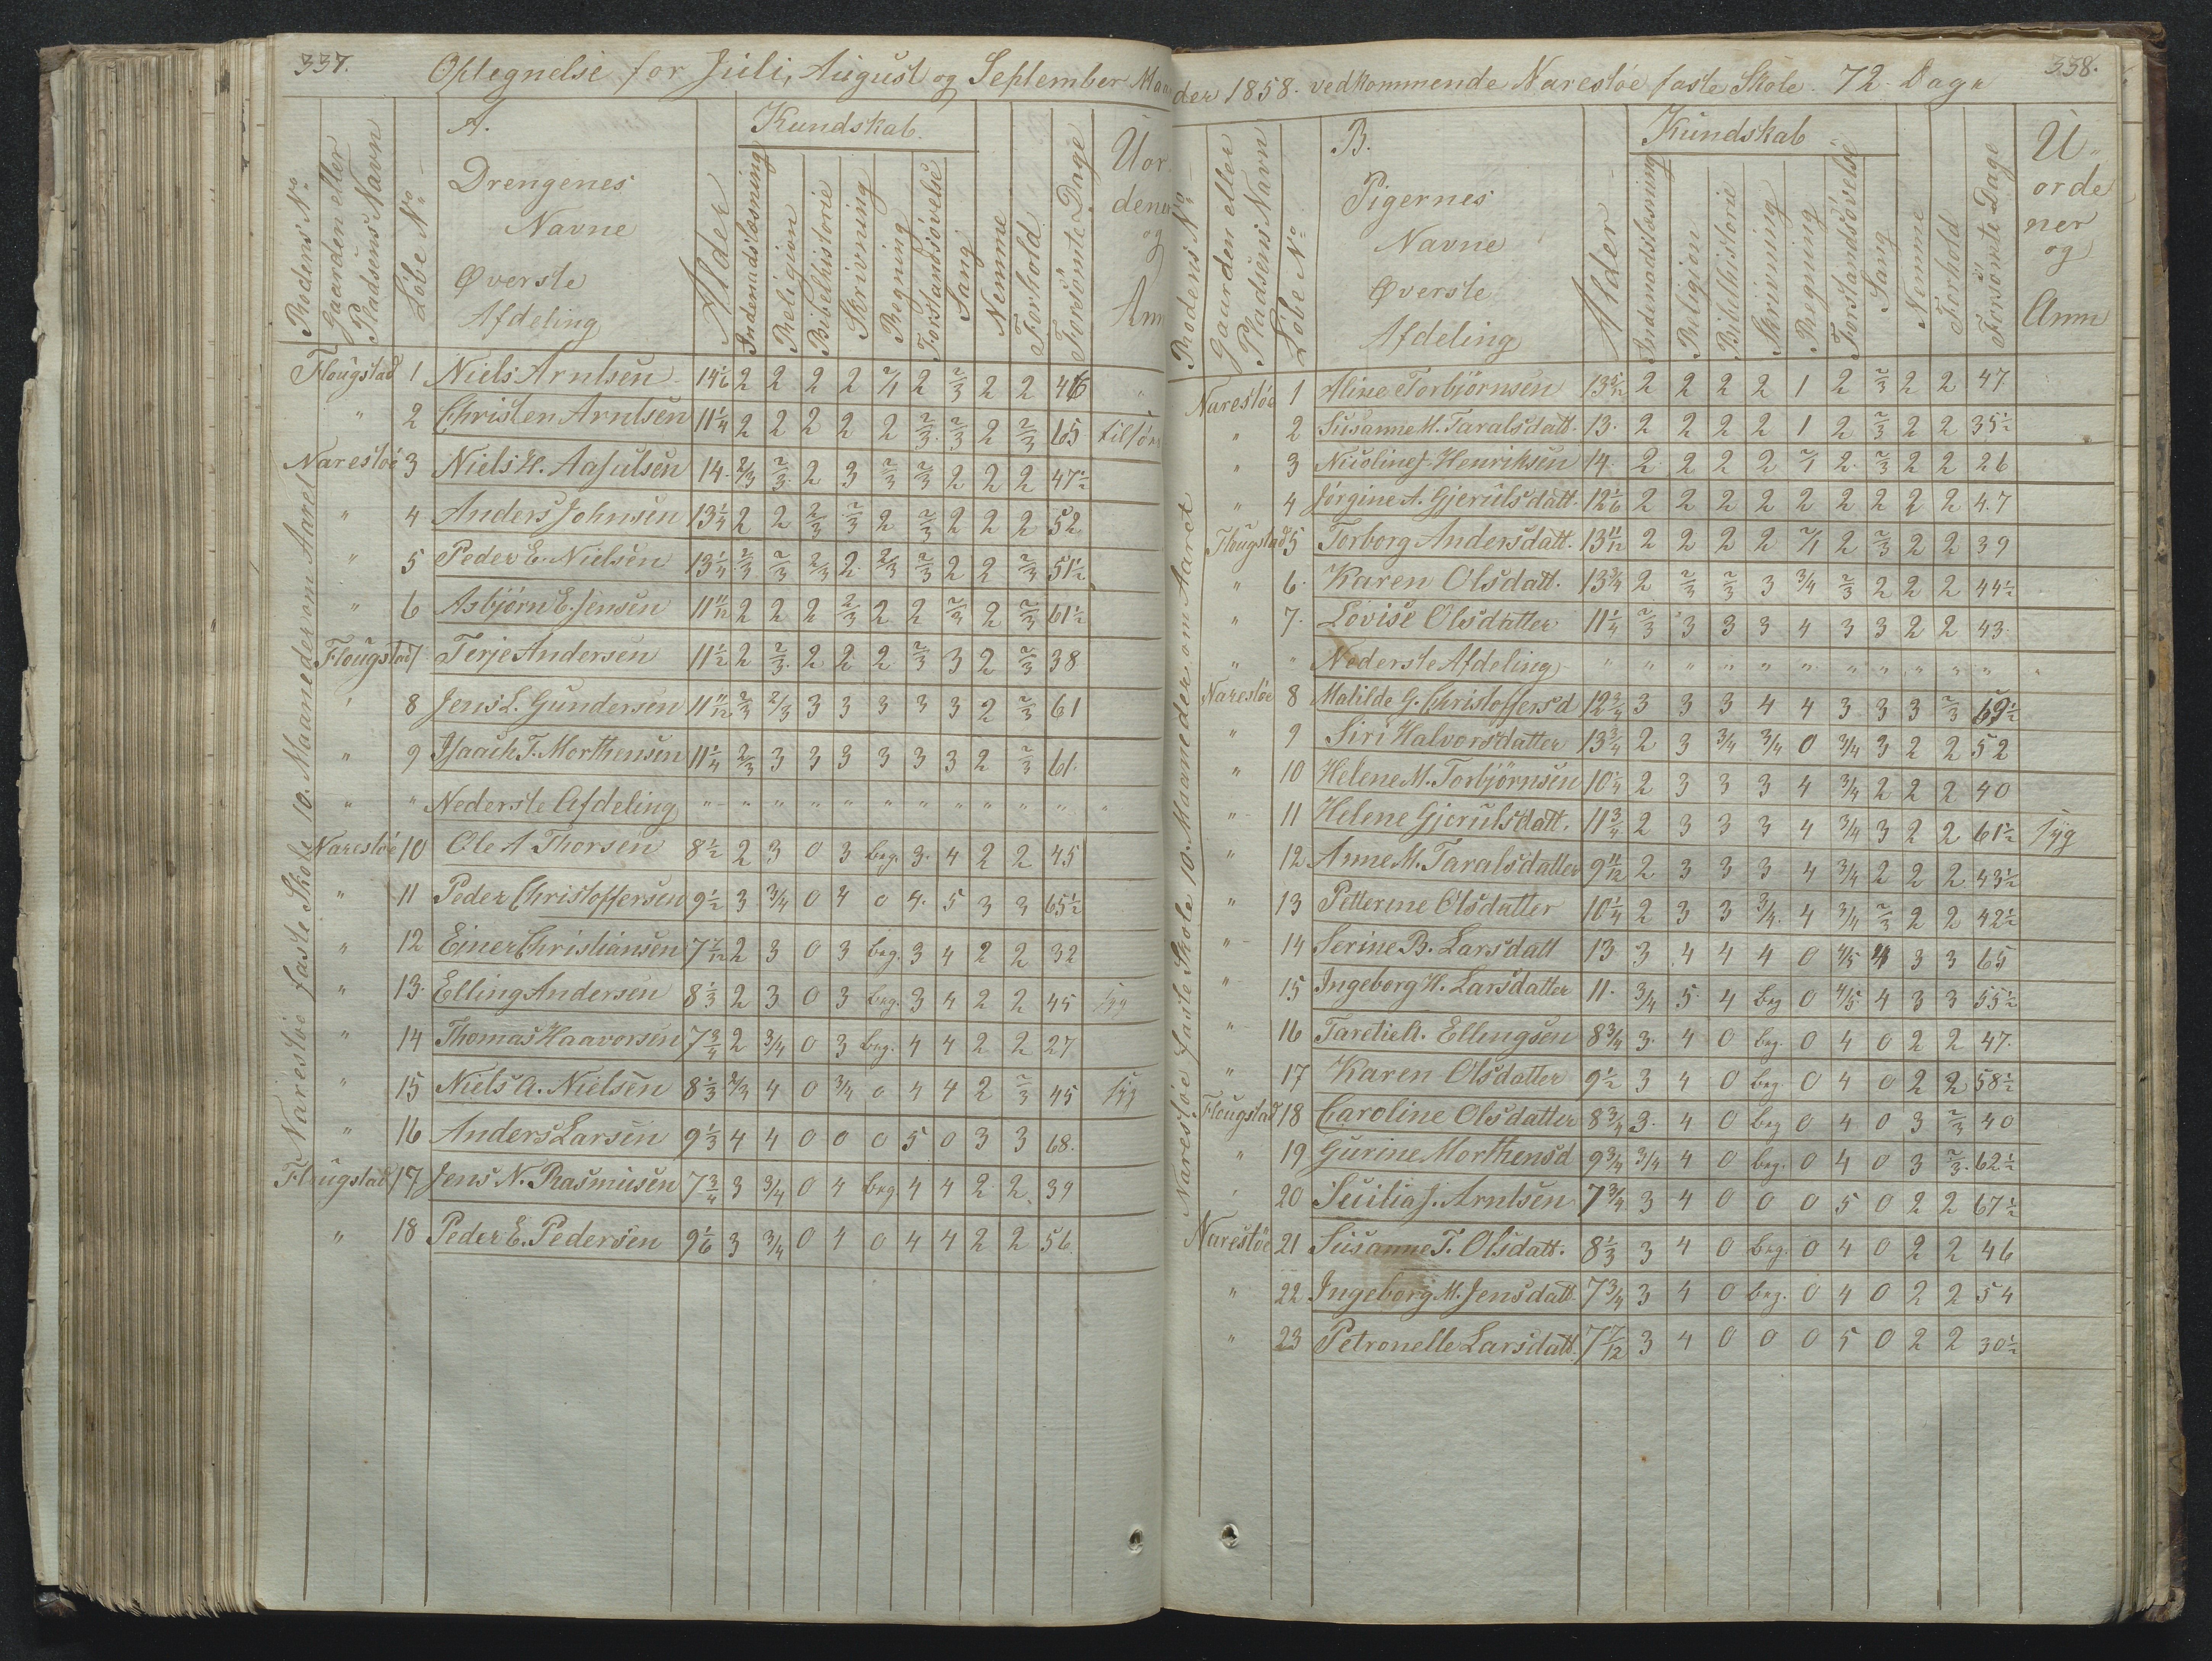 337.
Optegnelse for Juli, August og September Maa
A.
Kundskab.
Rodens No
Gaarden eller
Pladsens Navn
Löbe No
Drengenes
Navne
Øverste
Afdeling
Alder
Indenadslæsning
Religion
Bibelhistorie
Skrivning
Regning
Forstandsövelse
Sang
Nemme
Forhold
Forsömte Dage
Uor
dener
og
Anm
Narestöe faste Skole 10. Maaneder om Aaret
Flougstad 1 Niels Arntsen 14 1/6 2 2 2 2 2/1 2 2/3 2 2 46 "
" 2 Christen Arntsen 11 1/4 2 2 2 2 2 2/3 2/3 2 2/3 65 tilsörs
Narestöe 3 Niels H. Aasulsen 14. 2/3 2/3 2 3 2/3 2/3 2 2 2 47 1/2
" 4 Anders Johnsen 13 1/4 2 2 2/3 2/3 2 2/3 2 2 2 52
" 5 Peder E. Nielsen 13 1/4 2/3 2/3 2/3 2 2/3 2/3 2 2 2/3 51 1/2
" 6 Asbjørn E. Jensen 11 11/12 2 2 2 2/3 2 2 2/3 2 2/3 61 1/2
Flougstad 7 Terje Andersen 11 1/2 2 2/3 2 2 2 2/3 3 2 2/3 38
" 8 Jens L. Gundersen 11 11/12 2/3 2/3 3 3 3 3 3 2 2/3 61
" 9 Isaach T. Morthensen 11 1/4 2/3 3 3 3 3 3 3 2 2/3 61.
" " Nederste Afdeling " " " " " " " " " " " "
Narestöe 10 Ole A Thorsen 8 1/2 2 3 0 3 beg. 3. 4 2 2 45
" 11 Peder Christoffersen 9 1/2 3 3/4 0 4 0 4. 5 3 3 65 1/2
" 12 Einer Christiansen 7 7/12 2 3 0 3 beg. 3 4 2 2 32
" 13. Elling Andersen 8 1/3 2 3 0 3 beg. 3 4 2 2 45 syg
" 14 Thomas Haavorsen 7 3/4 2 3/4 0 3 beg. 4 4 2 2 27
" 15 Niels A. Nielsen 8 1/3 2/3 4 0 3/4 0 4 4 2 2/3 45 syg
" 16 Anders Larsen 9 1/3 4 4 0 0 0 5 0 3 3 68.
Flougstad 17 Jens N. Rasmusen 7 3/4 3 3/4 0 4 beg. 4 4 2 2 39
" 18 Peder E. Pedersen 9 1/6 3 3/4 0 4 0 4 4 2 2 56
338.
der 1858. vedkommende Narestöe faste Skole. 72 Dage
B.
Kundskab
Rodens No
Gaarden eller
Pladsens Navn
Löbe No
Pigernes
Navne
Øverste
Afdeling
Alder
Indenadslæsning
Religion
Bibelhistorie
Skrivning
Regning
Forstandsövelse
Sang
Nemme
Forhold
Forsömte Dage
U
orde
ner
og
Anm
Narestöe faste Skole 10. Maaneder om Aaret
Narestöe 1 Aline Torbjörnsen 13 5/12 2 2 2 2 1 2 2/3 2 2 47
" 2 Susanne M. Taralsdatt. 13. 2 2 2 2 1 2 2/3 2 2 35 1/2
" 3 Nicoline J. Henriksen 14. 2 2 2 2 2/1 2 2/3 2 2 26
" 4 Jörgine A. Gjerulsdatt. 12 1/6 2 2 2 2 2 2 2 2 2 47
Flougstad 5 Torborg Andersdatt. 13 11/12 2 2 2 2 2/1 2 2/3 2 2 39
" 6. Karen Olsdatt. 13 3/4 2 2/3 2/3 3 3/4 2/3 2 2 2 44 1/2
" 7. Lovise Olsdatter 11 1/4 2/3 3 3 3 4 3 3 2 2 43
" " Nederste Afdeling " " " " " " " " " " " "
Narestöe 8 Matilde G. Christoffersd 12 3/4 3 3 3 4 4 3 3 3 2/3 69 1/2
" 9 Siri Halvorsdatter 13 3/4 2 3 3/4 3/4 0 3/4 3 2 2 52
" 10 Helene M. Torbjörnsen 10 1/4 2 3 3 3 4 3/4 2 2 2 40
" 11 Helene Gjerulsdatt. 11 3/4 2 3 3 3 4 3/4 3 2 2 61 1/2 syg
" 12 Anne M. Taralsdatter 9 11/12 2 3 3 3 4 3/4 2 2 2 43 1/2
" 13 Petterine Olsdatter 10 1/4 2 3 3 3/4. 4 3/4 2/3 2 2 42 1/2
" 14 Serine B. Larsdatt 13 3 4 4 4 0 4/5 4 3 3 65
" 15 Ingeborg H. Larsdatter 11. 3/4 5. 4 beg 0 4/5 4 3 3 55 1/2
" 16 Taretie A. Ellingsen 8 3/4 3. 4 0 beg. 0 4 0 2 2 47.
" 17 Karen Olsdatter 9 1/2 3 4 0 beg 0 4 0 2 2 58 1/2
Flougstad 18 Caroline Olsdatter 8 3/4 3. 4 0 beg 0 4 0 3 2/3 40
" 19 Gurine Morthensd 9 3/4 3/4 4 0 beg. 0 4 0 3 2/3. 62 1/2
" 20 Sicilia J. Arntsen 7 3/4 3 4 0 0 0 5 0 2 2 67 1/2
Narestöe 21 Susanne T. Olsdatt. 8 1/3 3 4 0 beg. 0 4 0 2 2 46
" 22 Ingeborg M. Jensdatt 7 3/4 3 4 0 beg. 0 4 0 2 2 54
" 23 Petronelle Larsdatt. 7 7/12 3 4 0 0 0 5 0 2 2 30 1/2